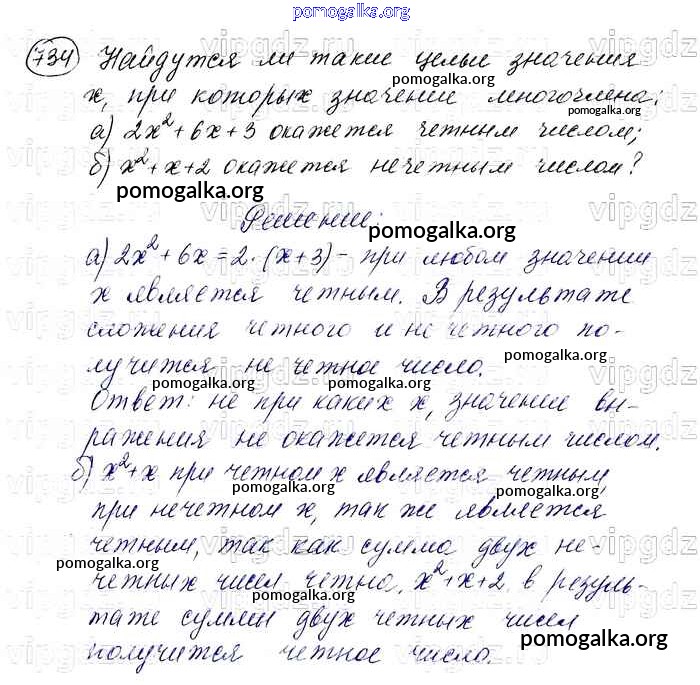 pomogalka.org
734 Найдутся ли такие целые значения
pomogalka.org
x, при которых значение многочлена:
pomogalka.org
а) 2x²+6x+3 окажется четным числом;
б) x²+x+2 окажется нечетным числом?
pomogalka.org
pomogalka.org
Решение:
pomogalka.org
а) 2x²+6x=2·(x+3) - при любом значении
x является четным. В результате
pomogalka.org
сложения четного и нечетного по-
лучится не четное число.
pomogalka.org
pomogalka.org
Ответ: не при каких x, значение вы-
pomogalka.org
ражения не окажется четным числом.
б) x²+x при четном x является четным,
pomogalka.org
pomogalka.org
при нечетном x, так же является
четным, так как сумма двух не-
pomogalka.org
четных чисел четна. x²+x+2 в резуль-
pomogalka.org
тате суммы двух четных чисел
pomogalka.org
получится четное число.
vipgdz.ru